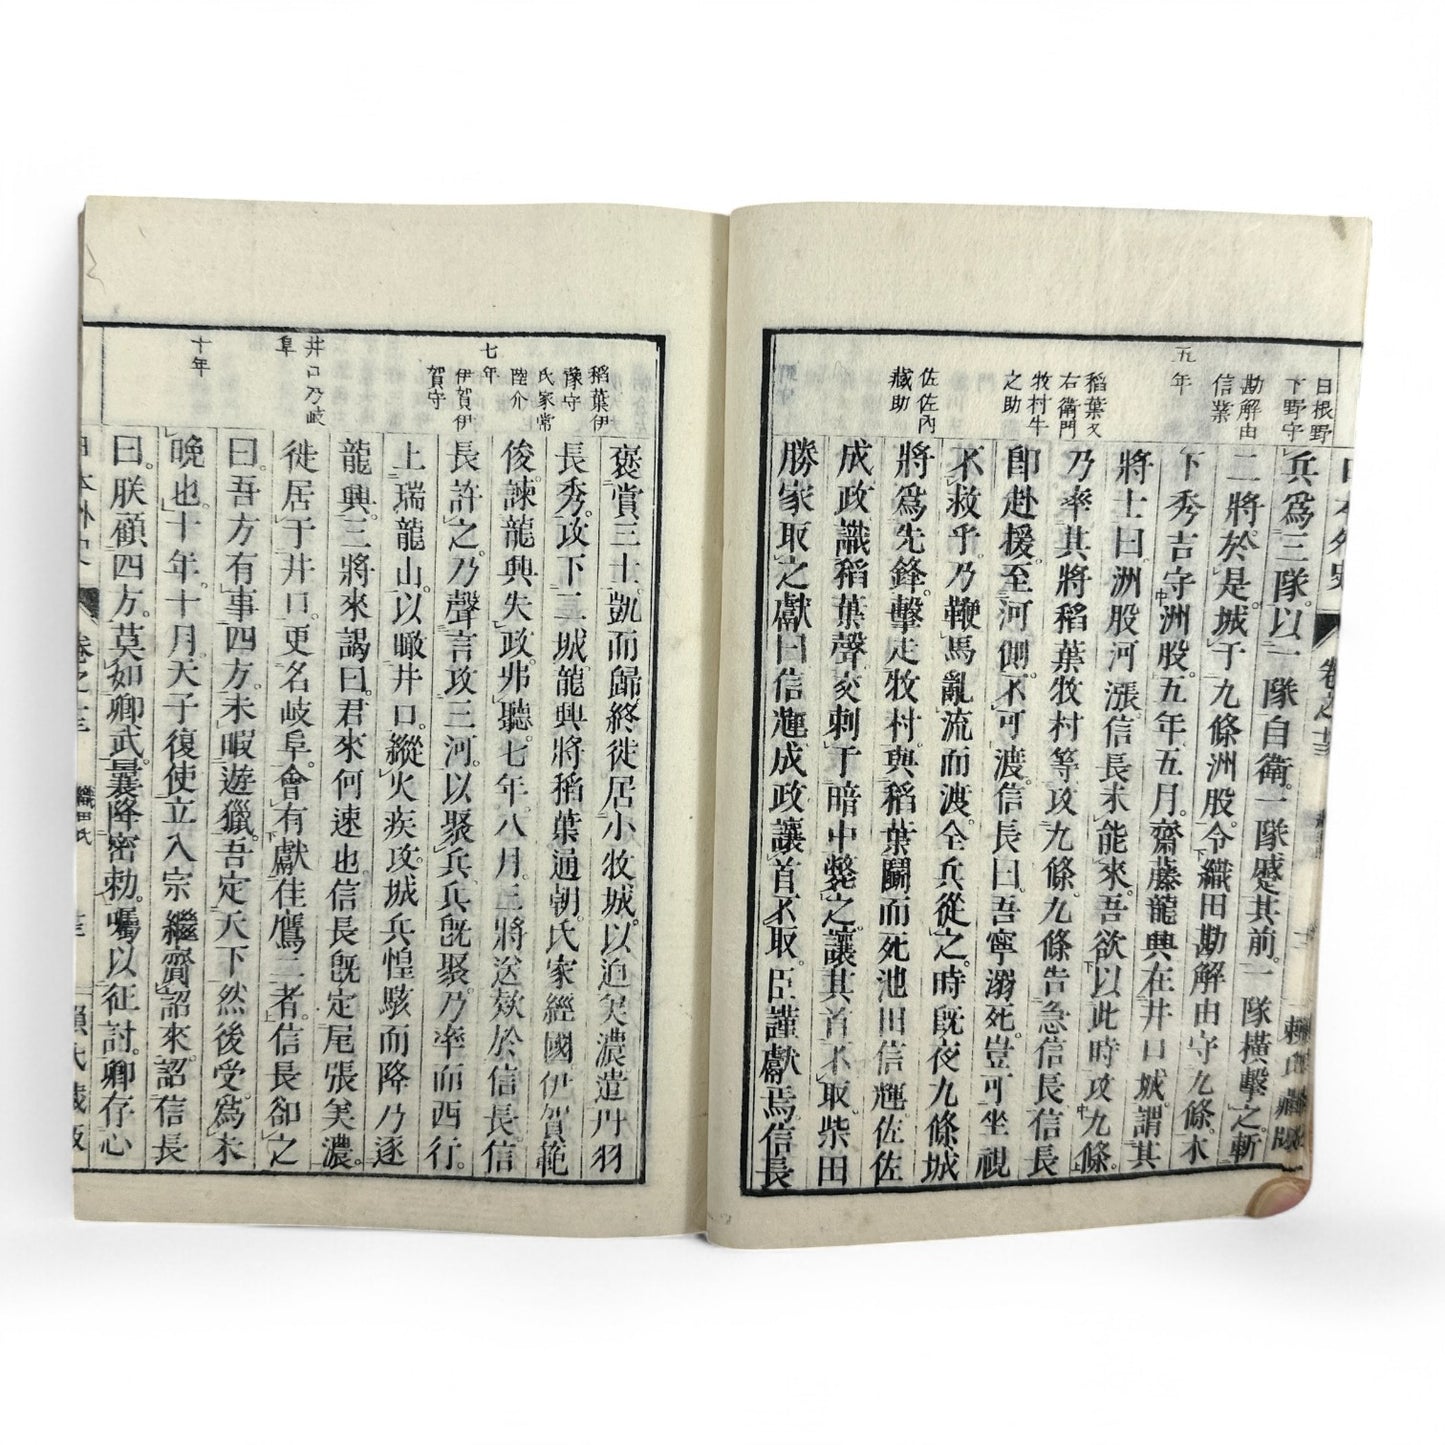 日根野
下野守
勘解由
信業
五年
稻葉又
右衞門
牧村牛
之助
佐佐內
藏助
兵爲三隊。以一隊自衞。一隊蹙其前。一隊橫擊之。斬
二將於是。城于九條洲股。令織田勘解由守九條。木
下秀吉守洲股。五年五月。齋藤龍興在井口城。謂其
將士曰。洲股河漲。信長未能來。吾欲以此時攻九條。
乃率其將稻葉牧村等攻九條。九條告急信長。信長
卽赴援。至河側。不可渡。信長曰。吾寧溺死。豈可坐視
不救乎。乃鞭馬亂流而渡。全兵從之。時既夜。九條城
將爲先鋒。擊走牧村。與稻葉鬭而死。池田信輝佐佐
成政識稻葉聲。交刺于暗中。斃之。讓其首不取。柴田
勝家取之獻曰。信輝成政讓首不取。臣謹獻焉。信長
稻葉伊
豫守
氏家常
陸介
七年
伊賀伊
賀守
井口乃岐
阜
十年
褒賞三士。凱而歸。終徙居小牧城。以迫美濃。遣丹羽
長秀。攻下二城。龍興將稻葉通朝。氏家經國。伊賀範
俊。諫龍興失政。弗聽。七年。八月。三將送款於信長。信
長許之。乃聲言攻三河。以聚兵。兵既聚。乃率而西行。
上瑞龍山。以瞰井口。縱火疾攻。城兵惶駭而降。乃逐
龍興。三將來謁曰。君來何速也。信長既定尾張美濃。
徙居于井口。更名岐阜。會有獻佳鷹二者。信長卻之
曰。吾方有事四方。未暇遊獵。吾定天下。然後受爲未
晩也。十年。十月。天子復使立入宗繼齎詔來。詔信長
曰。朕顧四方。莫如卿武。曩降密勅。囑以征討。卿存心
日本外史
卷之十三
織田氏
賴氏藏版